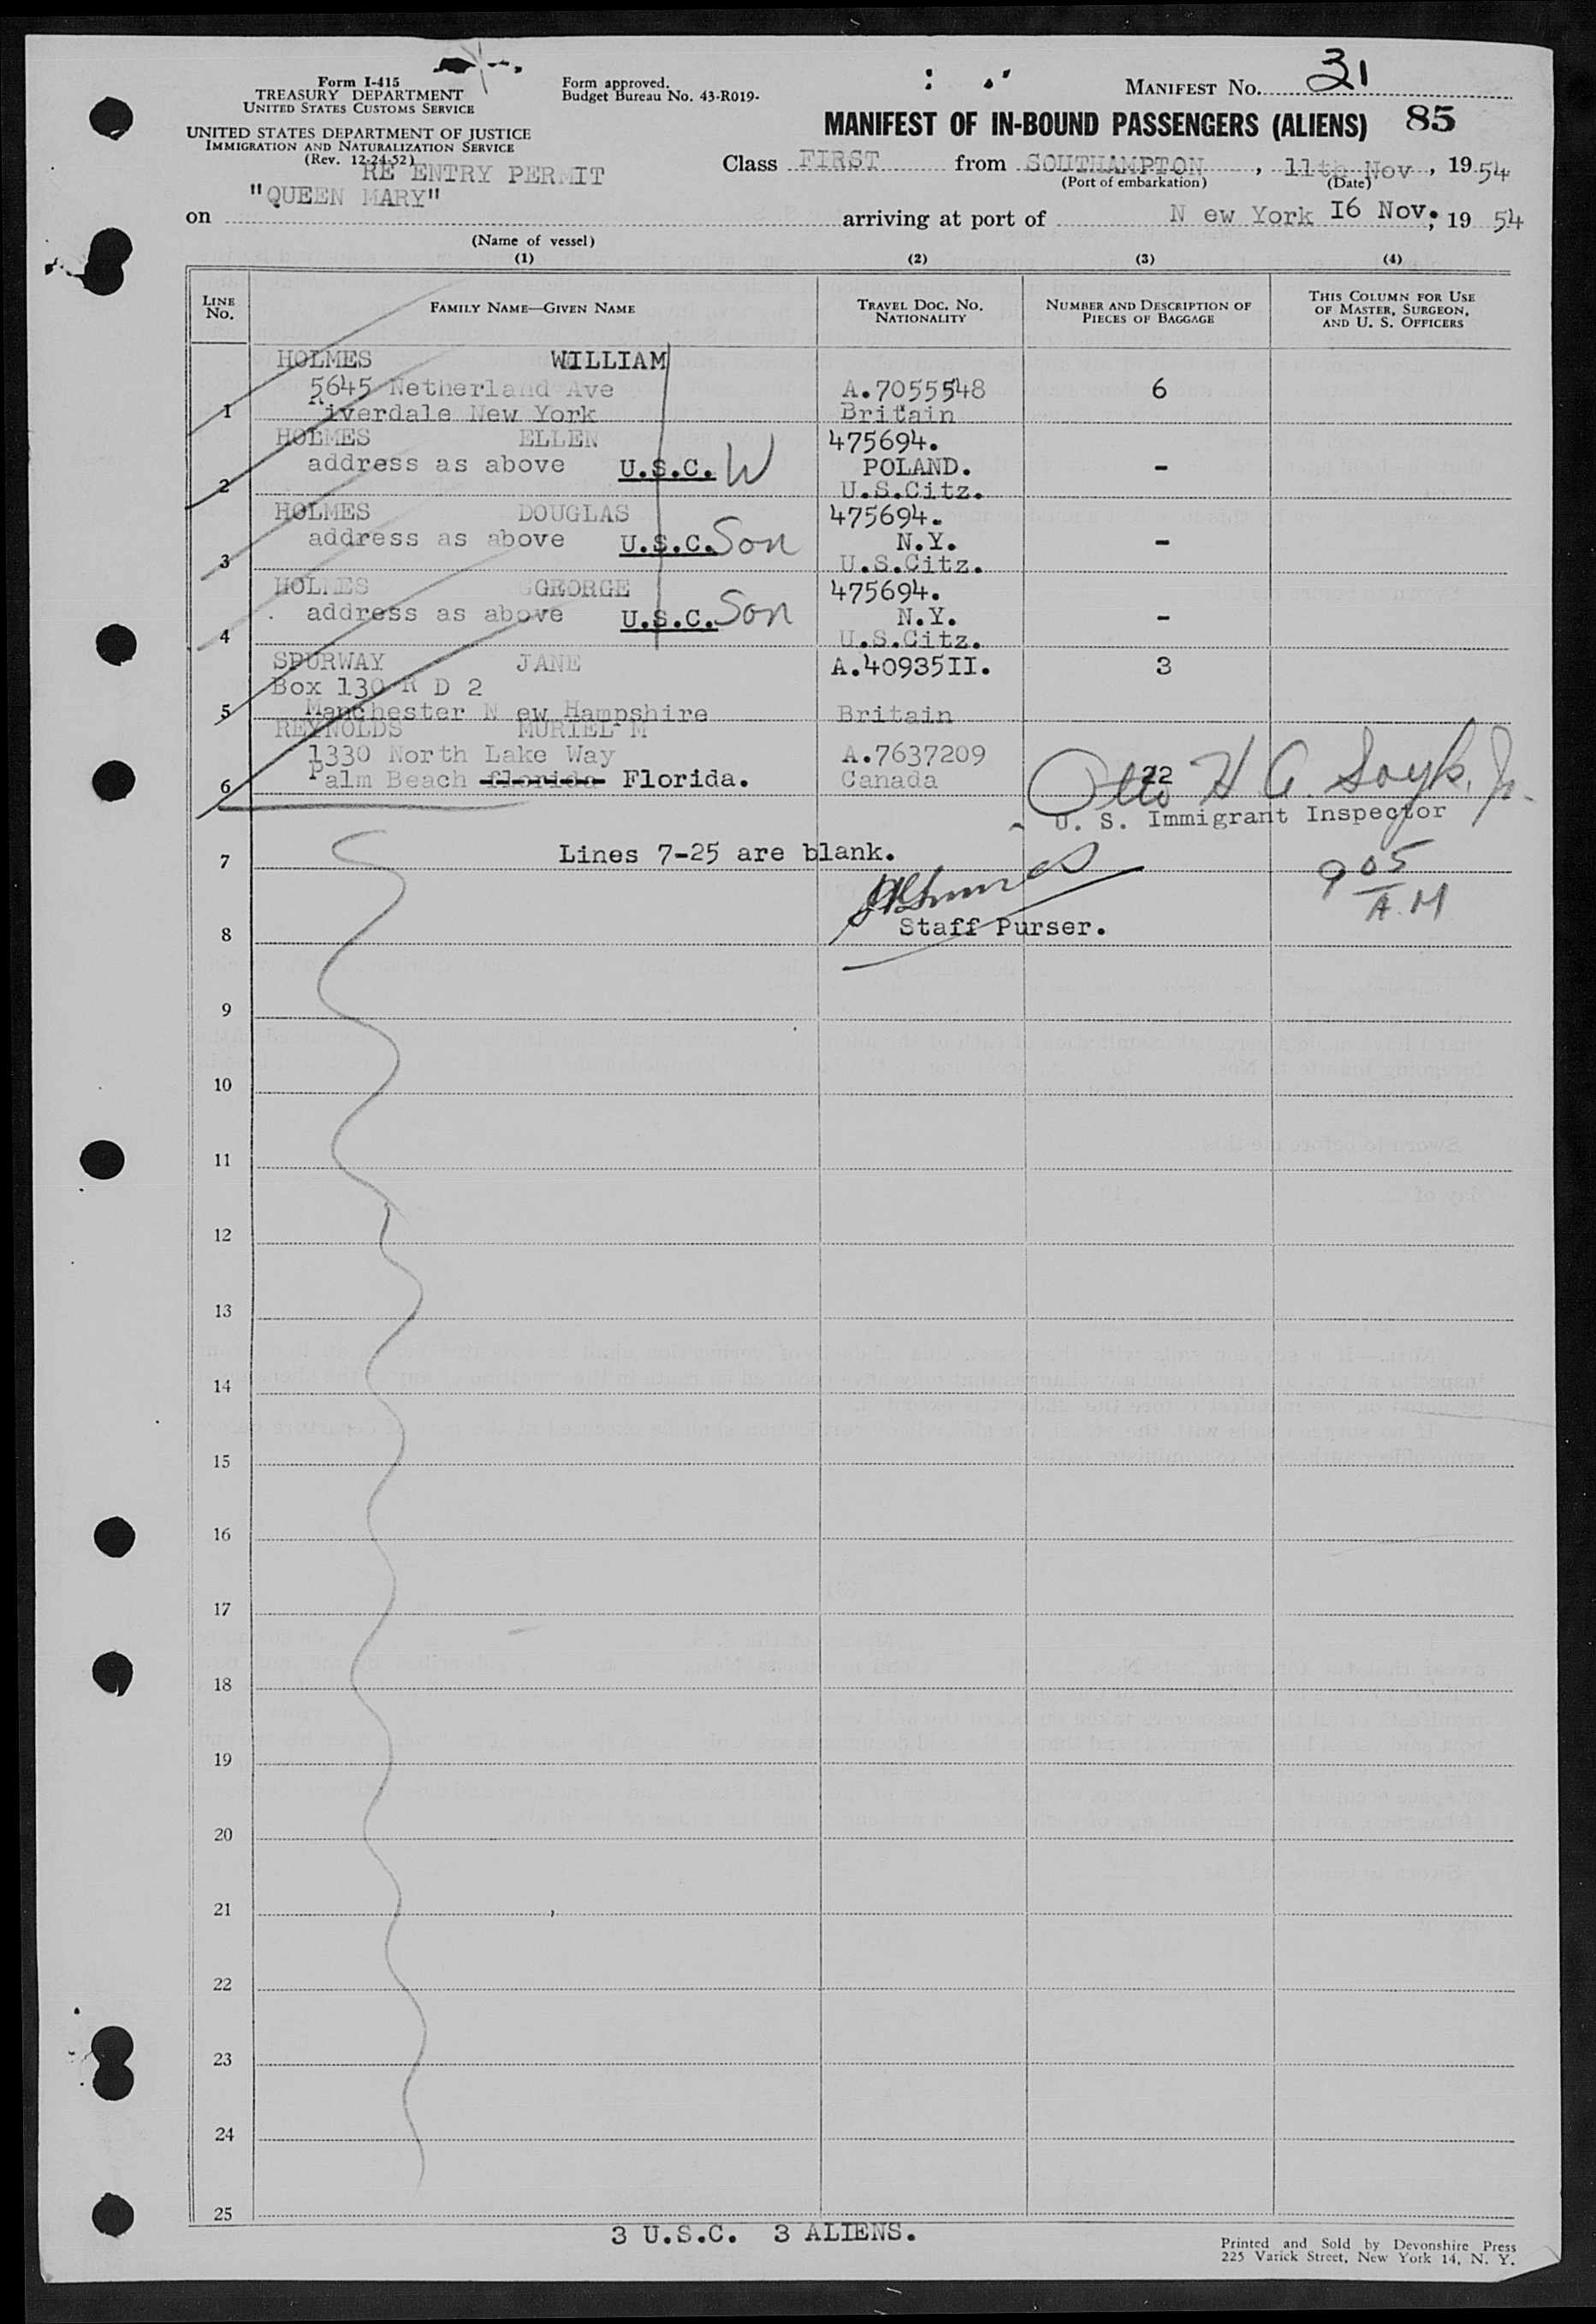 Form I-415
TREASURY DEPARTMENT
UNITED STATES CUSTOMS SERVICE
UNITED STATES DEPARTMENT OF JUSTICE
IMMIGRATION AND NATURALIZATION SERVICE
(Rev. 12-24-52)
Form approved.
Budget Bureau No. 43-R019-
MANIFEST No. 31
MANIFEST OF IN-BOUND PASSENGERS (ALIENS) 85
RE ENTRY PERMIT
Class FIRST from SOUTHAMPTON, 11th Nov, 1954
(Port of embarkation) (Date)
on "QUEEN MARY" arriving at port of N ew York 16 Nov., 19 54
(Name of vessel)
(1) (2) (3) (4)
LINE No. FAMILY NAME—GIVEN NAME TRAVEL DOC. NO. NATIONALITY NUMBER AND DESCRIPTION OF PIECES OF BAGGAGE THIS COLUMN FOR USE OF MASTER, SURGEON, AND U. S. OFFICERS
HOLMES WILLIAM
5645 Netherland Ave A.7055548 6
1 Riverdale New York Britain
HOLMES ELLEN 475694.
address as above U.S.C. W POLAND. -
2 U.S.Citz.
HOLMES DOUGLAS 475694.
address as above U.S.C. Son N.Y. -
3 U.S.Citz.
HOLMES GEORGE 475694.
address as above U.S.C. Son N.Y. -
4 U.S.Citz.
SPURWAY JANE A.40935II. 3
Box 130 R D 2
5 Manchester N ew Hampshire Britain
REYNOLDS MURIEL M
1330 North Lake Way A.7637209
6 Palm Beach florida Florida. Canada 22
Otto H A.
U. S. Immigrant Inspector
7 Lines 7-25 are blank.
9 05 A.M
8 Staff Purser.
9
10
11
12
13
14
15
16
17
18
19
20
21
22
23
24
25
3 U.S.C. 3 ALIENS.
Printed and Sold by Devonshire Press
225 Varick Street, New York 14, N. Y.